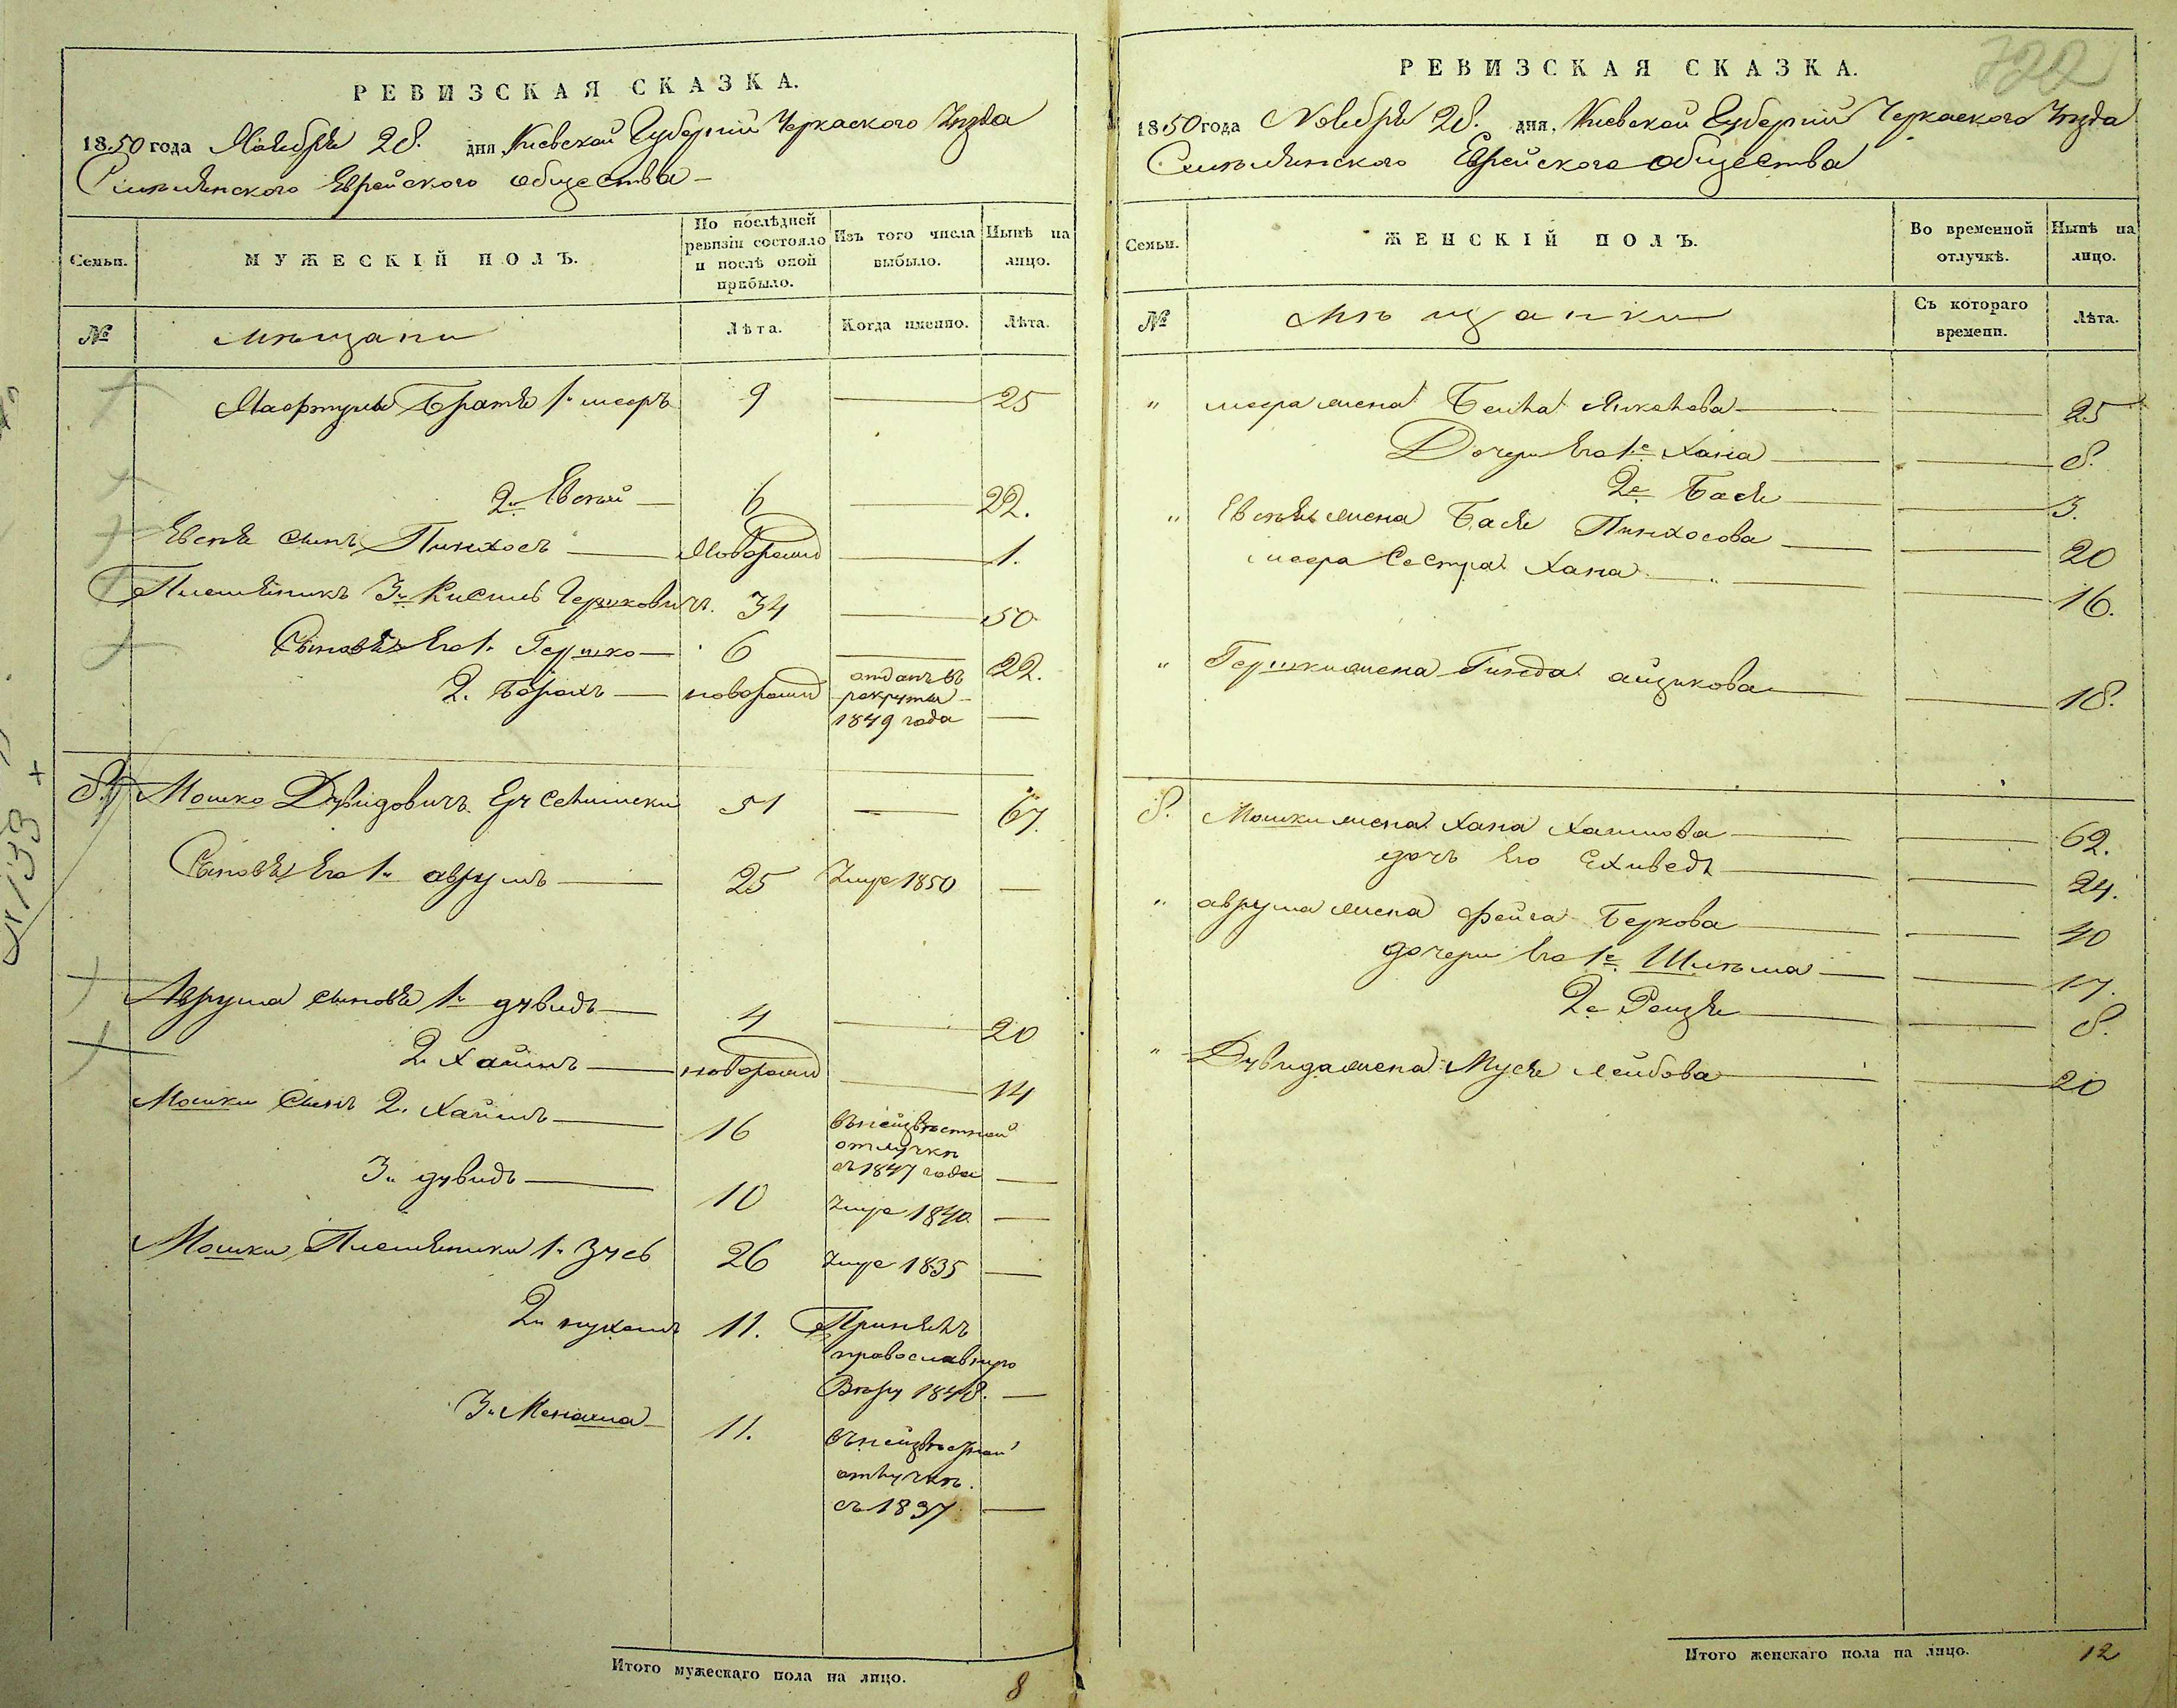 РЕВИЗСКАЯ СКАЗКА.
1850 года Ноября 28. дня, Киевской Губерніи Черкаского Уѣзда
Смѣлянского Еврейского общества
Семьи.
МУЖЕСКІЙ ПОЛЪ.
По послѣдней ревизіи состояло и послѣ оной прибыло.
Изъ того числа выбыло.
Нынѣ на лицо.
№
мѣщани
Лѣта.
Когда именно.
Лѣта.
Братья 1й 9 — 25
2й Евсѣй — 6 — 22.
Евсѣя сынъ Пинхосъ — новорожд — 1.
Племянникъ 3й Кисиль Гершковичъ. 34 — 50
Сыновья Его 1й Гершко — 6 — 22.
2. Борохъ — новорожд отданъ въ рекруты 1849 года —
8. Мошко Дувидовичъ 51 — 67.
Сыновья Его 1й аврумъ — 25 Умре 1850 —
Аврума сыновья 1й дувидъ — 4 — 20
2. Хаимъ — новорожд — 14
Мошки Сынъ 2. Хаимъ — 16 въ неизвѣстной отлучкѣ съ 1847 года —
3й дувидъ — 10 Умре 1840 —
Мошки Племянники 1й Зусь 26 Умре 1835 —
2й нухимъ 11. Принялъ православную Вѣру 1848. —
3й Менаша — 11. въ неизвѣстной отлучкѣ. съ 1837 —
Итого мужескаго пола на лицо. 8
722
РЕВИЗСКАЯ СКАЗКА.
1850 года Ноября 28. дня, Киевской Губерніи Черкаского Уѣзда
Смѣлянского Еврейского общества
Семьи.
ЖЕНСКІЙ ПОЛЪ.
Во временной отлучкѣ.
Нынѣ на лицо.
№
Мѣщанки
Съ котораго времени.
Лѣта.
" жена Бейла Янкелева — — 25
Дочери Его 1е Хана — — 8.
2е Бася — — 3.
" Евсѣя жена Бася Пинхосова — — 20
Сестра Хана — — 16.
" Гершки жена Гинда айзикова — — 18.
8. Мошки жена Хана Хаимова — — 62.
дочь Его Ехиведъ — — 24.
" аврума жена фейга Беркова — — 40
дочери Его 1е Шифма — — 17.
2е Рейзя — — 8.
" Дувида жена Муся лейбова — — 20
Итого женскаго пола на лицо. 12